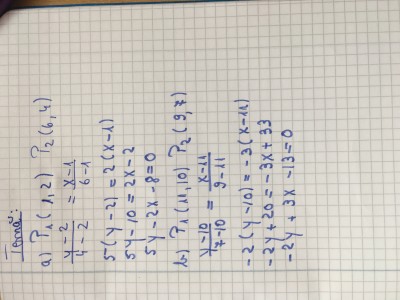 Temă:
a) P₁(1,2) P₂(6,4)
y-2/4-2 = x-1/6-1
5(y-2) = 2(x-1)
5y-10 = 2x-2
5y-2x-8=0
b) P₁(11,10) P₂(9,7)
y-10/7-10 = x-11/9-11
-2(y-10) = -3(x-11)
-2y+20 = -3x+33
-2y+3x-13=0